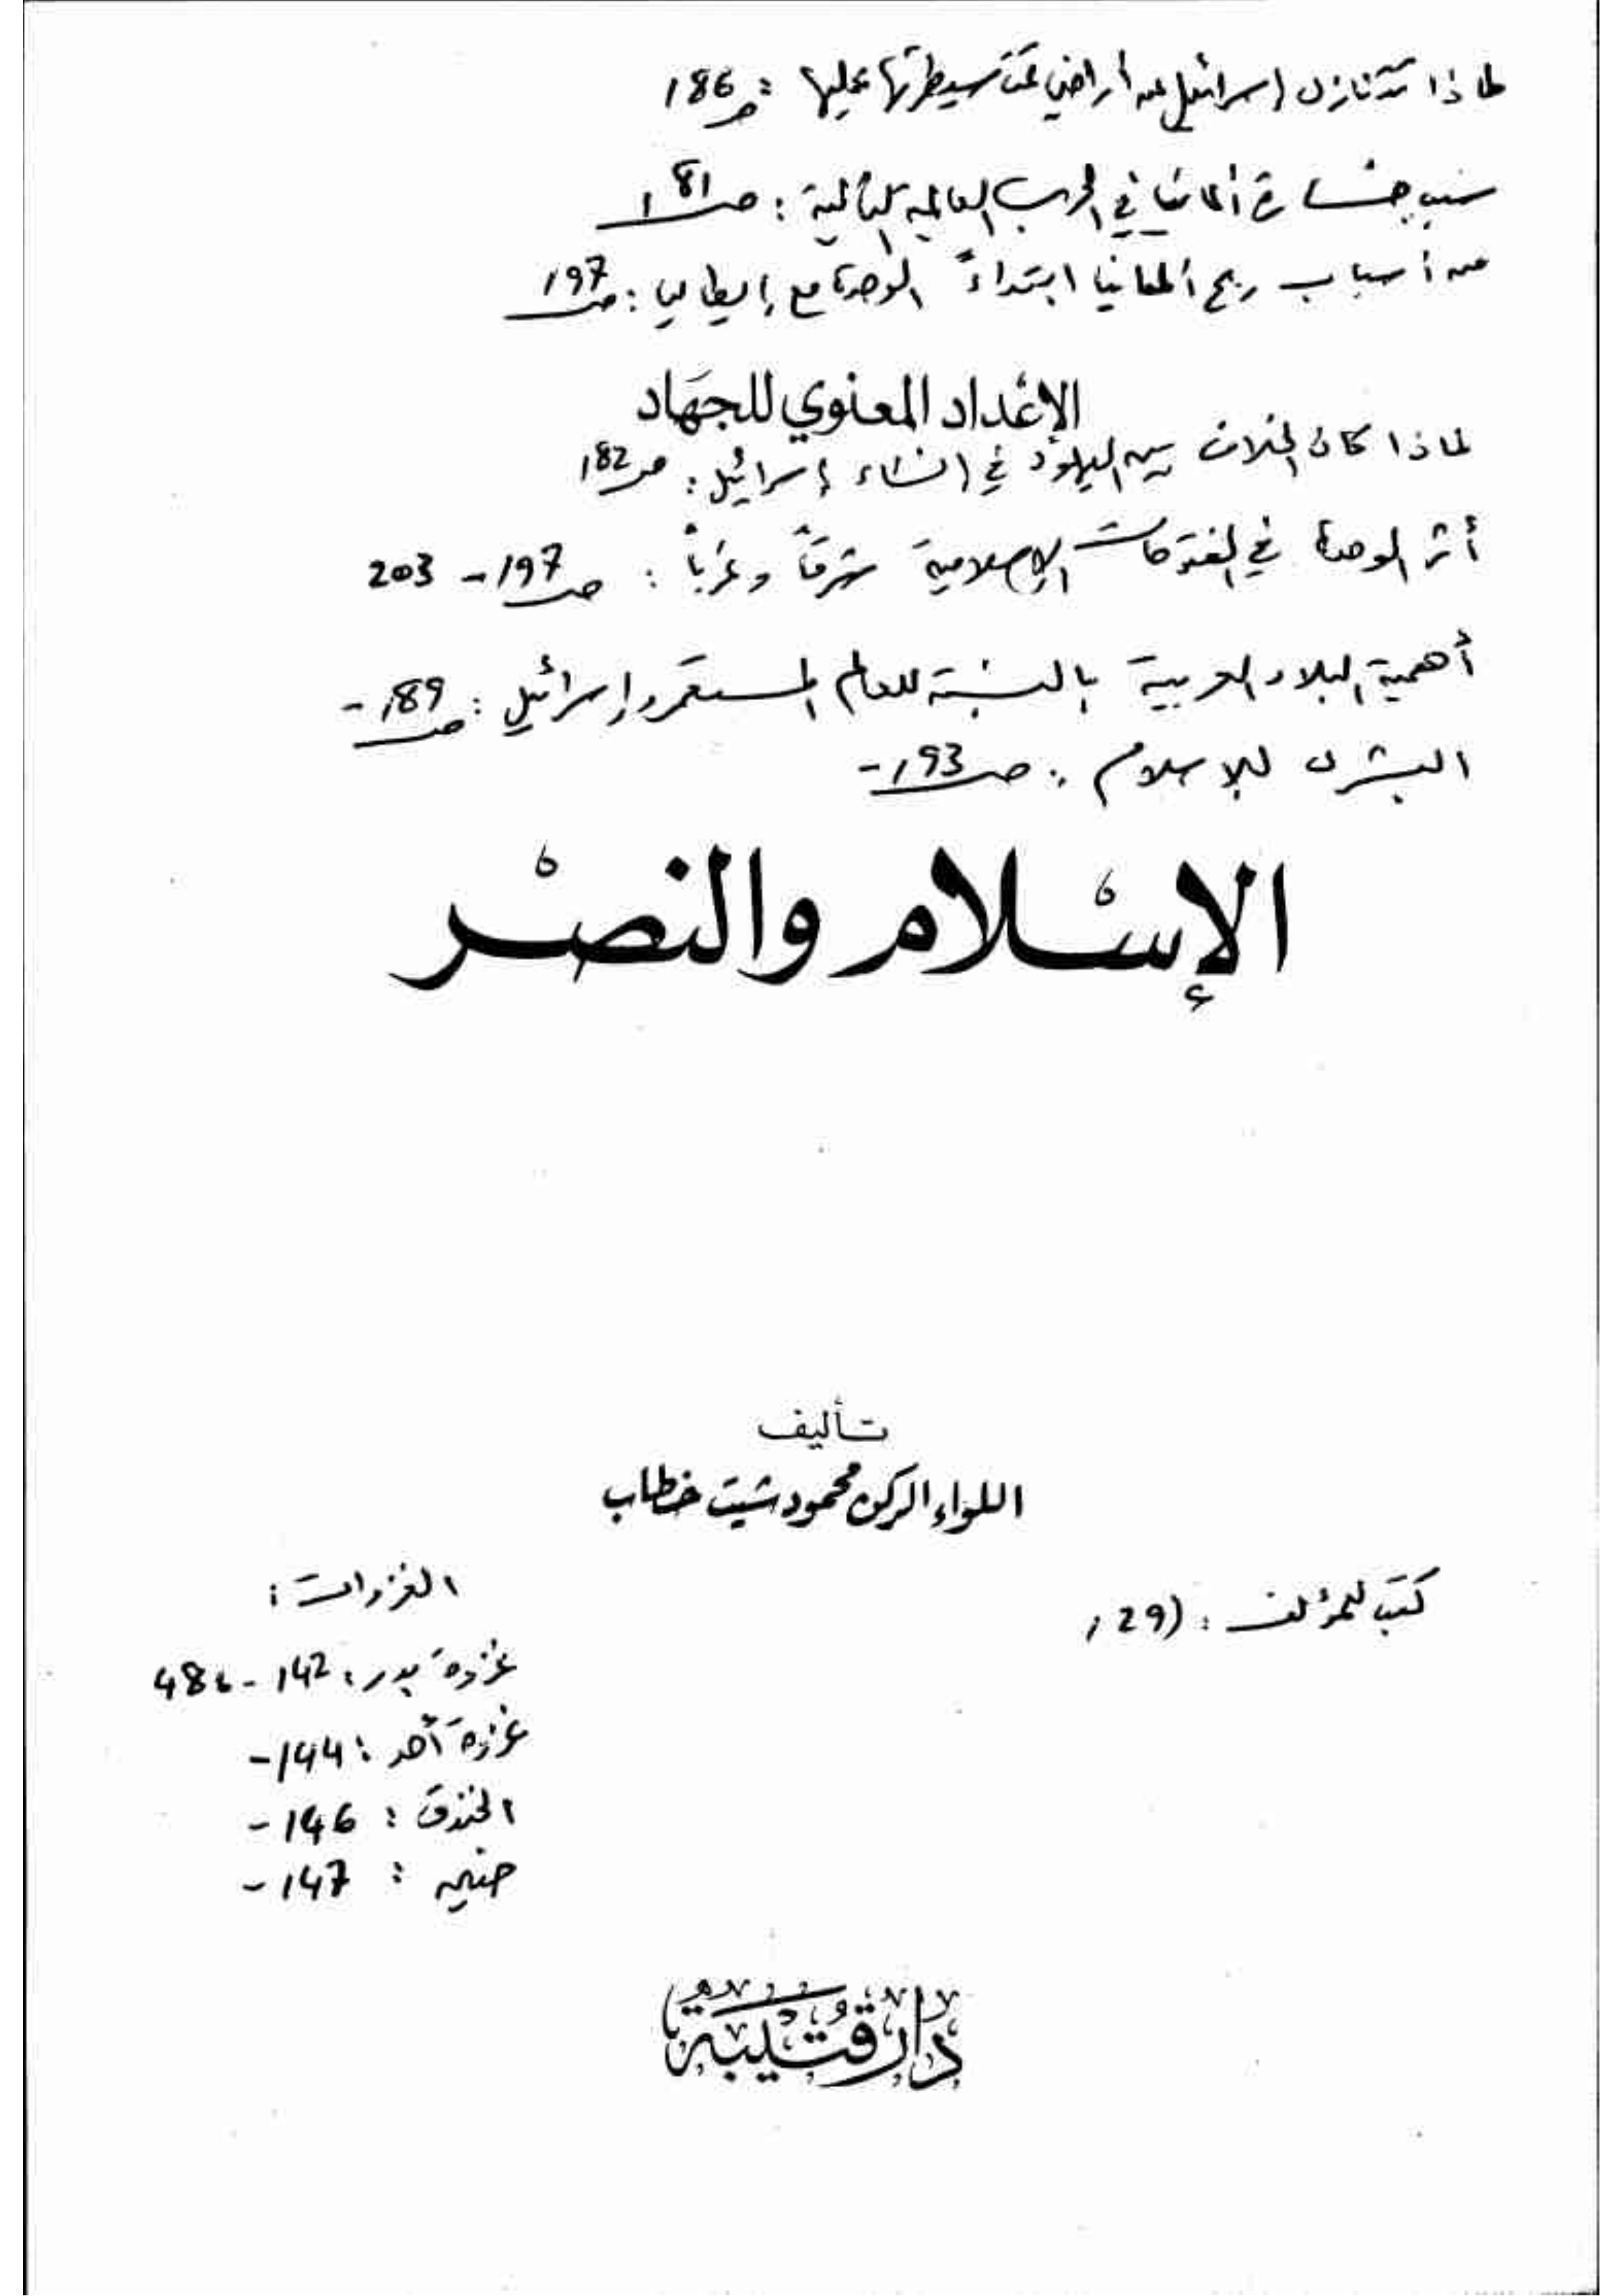 لماذا تتنازل إسرائيل عن أراضي تمت سيطرتها عليها : ص 186
سبب خسارة ألمانيا في الحرب العالمية الثانية : ص 181
من أسباب ربح ألمانيا ابتداءً الوحدة مع إيطاليا : ص 197
الإعداد المعنوي للجهاد
لماذا كان الخلاف بين اليهود في إنشاء إسرائيل : ص 182
أثر الوحدة في الفتوحات الإسلامية شرقاً وغرباً : ص 197 - 203
أهمية البلاد العربية بالنسبة للعالم المستعمر وإسرائيل : ص 189 -
البشرى للإسلام : ص 193 -
الإسْلام والنصْر
تأليف
اللواء الركن محمود شيت خطاب
كتب للمؤلف : (29
الغزوات :
غزوة بدر : 142 -
غزوة أحد : 144 -
الخندق : 146 -
حنين : 147 -
دار قتيبة